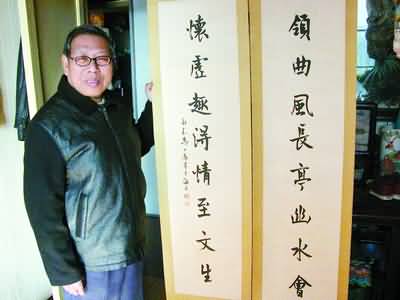 領曲風長亭幽水會
懷虛趣得情至文生